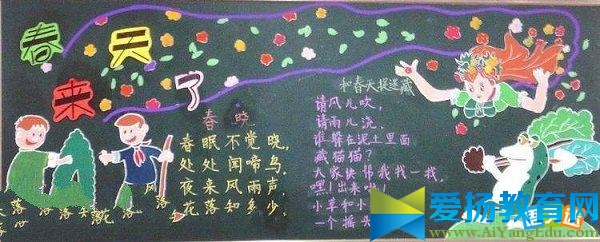 春天
来了
春晓
春眠不觉晓，
处处闻啼鸟，
夜来风雨声，
花落知多少。
和春天捉迷藏
请风儿吹，
请雨儿浇，
谁躲在泥土里面
藏猫猫？
大家快帮我找一找，
嘿！出来啦！
小草和小
一个摇头
爱扬教育网
www.AiYangEdu.com